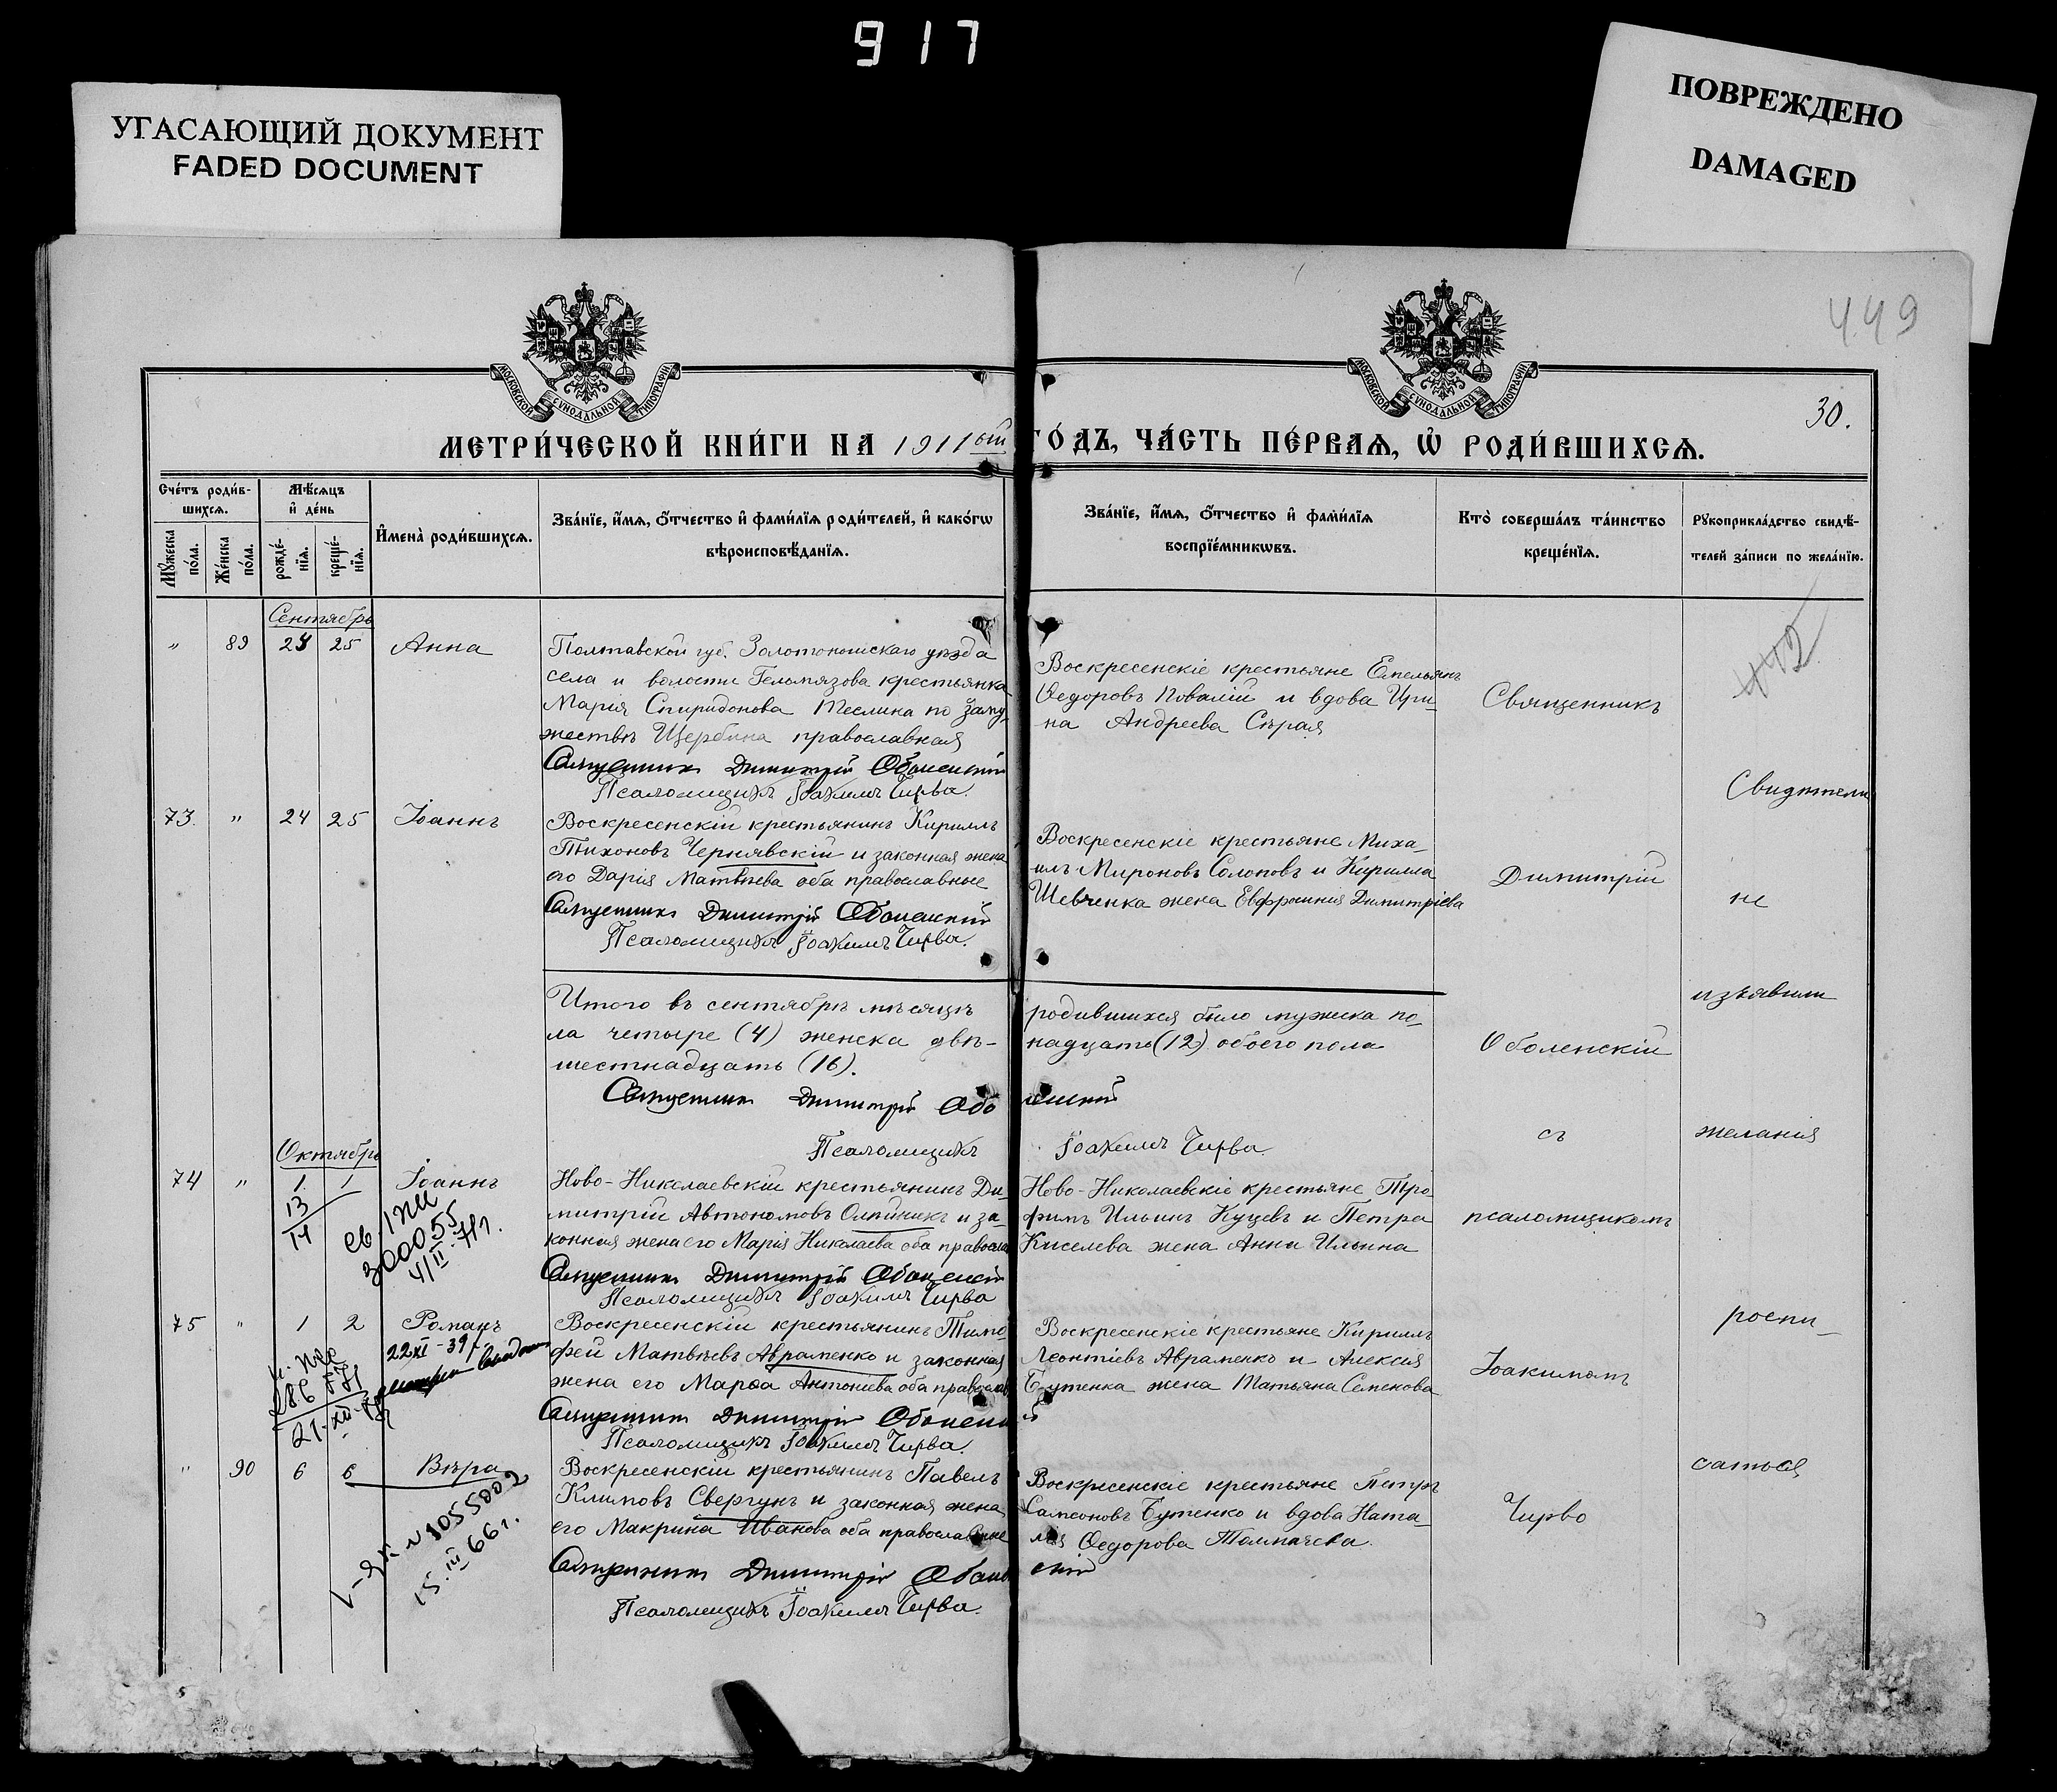 917
УГАСАЮЩИЙ ДОКУМЕНТ
FADED DOCUMENT
ПОВРЕЖДЕНО
DAMAGED
449
30.
МОСКОВСКОЙ СѴНОДАЛЬНОЙ ТИПОГРАФІИ
МОСКОВСКОЙ СѴНОДАЛЬНОЙ ТИПОГРАФІИ
МЕТРИ́ЧЕСКОЙ КНИ́ГИ НА 1911ый ГО́ДЪ, ЧА́СТЬ ПЕ́РВАѦ, Ѡ҆ РОДИ́ВШИХСѦ.
Сче́тъ роди́в-
шихсѧ.
Мꙋ́жеска по́ла.
Же́нска по́ла.
Мѣ́сѧцъ
и҆ де́нь
рожде́-
нїѧ.
креще́-
нїѧ.
И҆мена̀ роди́вшихсѧ.
Зва́нїе, и҆́мѧ, ѻ҆́тчество и҆ фами́лїѧ роди́телей, и҆ како́гѡ
вѣроисповѣ́данїѧ.
Зва́нїе, и҆́мѧ, ѻ҆́тчество и҆ фами́лїѧ
воспрїе́мникѡвъ.
Кто̀ соверша́лъ та́инство
креще́нїѧ.
Рꙋкоприкла́дство свидѣ́-
телей за́писи по жела́нїю.
Сентябрь
" 89 24 25 Анна
Полтавской губ. Золотоношскаго уѣзда
села и волости Гельмязова крестьянка
Марія Спиридонова Теслина по заму-
жеству Щербина православная
Священникъ Димитрій Оболенскій
Псаломщикъ Іоакимъ Чирва.
Воскресенскіе крестьяне Емельянъ
Ѳедоровъ Повалій и вдова Ири-
на Андреева Сѣрая
442
73. " 24 25 Іоаннъ
Воскресенскій крестьянинъ Кириллъ
Тихоновъ Чернявскій и законная жена
его Дарія Матвѣева оба православные
Священникъ Димитрій Оболенскій
Псаломщикъ Іоакимъ Чирва.
Воскресенскіе крестьяне Миха-
илъ Мироновъ Солоповъ и Кирилла
Шевченка жена Евфросинія Димитріева
Итого въ сентябрѣ мѣсяцѣ родившихся было мужска по-
ла четыре (4) женска двѣ- надцать (12) обоего пола
шестнадцать (16).
Священникъ Димитрій Оболенскій
Псаломщикъ Іоакимъ Чирва
Октябрь
74 " 1 1 Іоаннъ
13
14
300055
4/II 71г.
Ново-Николаевскій крестьянинъ Ди-
митрій Автономовъ Олейникъ и за-
конная жена его Марія Николаева оба правосла
Священникъ Димитрій Оболенскій
Псаломщикъ Іоакимъ Чирва
Ново-Николаевскіе крестьяне Тро-
фимъ Ильинъ Куцевъ и Петра
Киселева жена Анна Ильина
75 " 1 2 Романъ
22 XI - 39 г
Воскресенскій крестьянинъ Тимо-
фей Матвѣевъ Авраменко и законная
жена его Марѳа Антоніева оба православ
Священникъ Димитрій Оболенскій
Псаломщикъ Іоакимъ Чирва.
Воскресенскіе крестьяне Кириллъ
Леонтіевъ Авраменко и Алексія
Бутенка жена Татьяна Семенова
" 90 6 6 Вѣра
V-ЯК №1055002
15.III 66г.
Воскресенскій крестьянинъ Павелъ
Климовъ Свергунъ и законная жена
его Макрина Иванова оба православные
Священникъ Димитрій Оболенскій
Псаломщикъ Іоакимъ Чирва.
Воскресенскіе крестьяне Петръ
Самсоновъ Бутенко и вдова Ната-
лія Ѳедорова Толмачева.
Священникъ
Димитрій
Оболенскій
съ
псаломщикомъ
Іоакимомъ
Чирво
Свидѣтели
не
изъявили
желанія
роспи-
саться